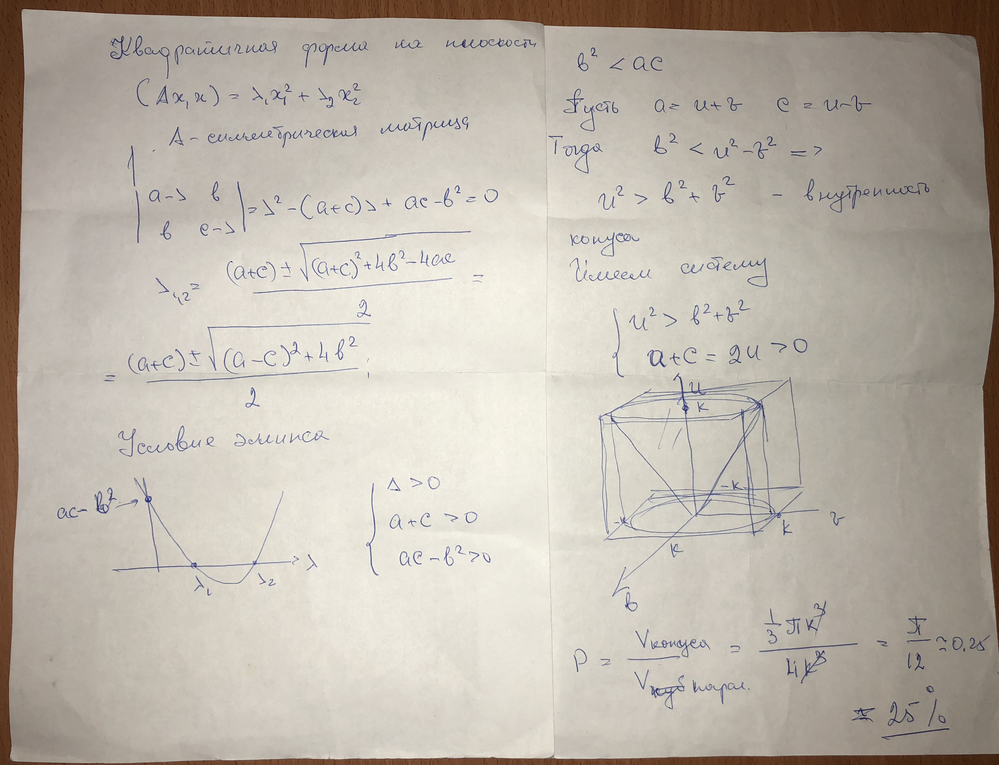 Квадратичная форма на плоскости
(Ax,x) = λ₁x₁² + λ₂x₂²
A - симметрическая матрица
|a-λ в; в c-λ| = λ² - (a+c)λ + ac - в² = 0
λ₁,₂ = ((a+c) ± √((a+c)² + 4в² - 4ac)) / 2 =
= ((a+c) ± √((a-c)² + 4в²)) / 2 ;
Условие эллипса
ac - в²
λ₁ λ₂ λ
{ Δ > 0
a+c > 0
ac - в² > 0
в² < ac
Пусть a = u+v c = u-v
Тогда в² < u² - v² =>
u² > в² + v² - внутренность
конуса
Имеем систему
{ u² > в² + v²
a+c = 2u > 0
u
K
-K
-K
K
K
v
в
P = Vконуса / Vпарал. = (1/3 πK³) / (4K³) = π/12 ≃ 0.25
= 25%